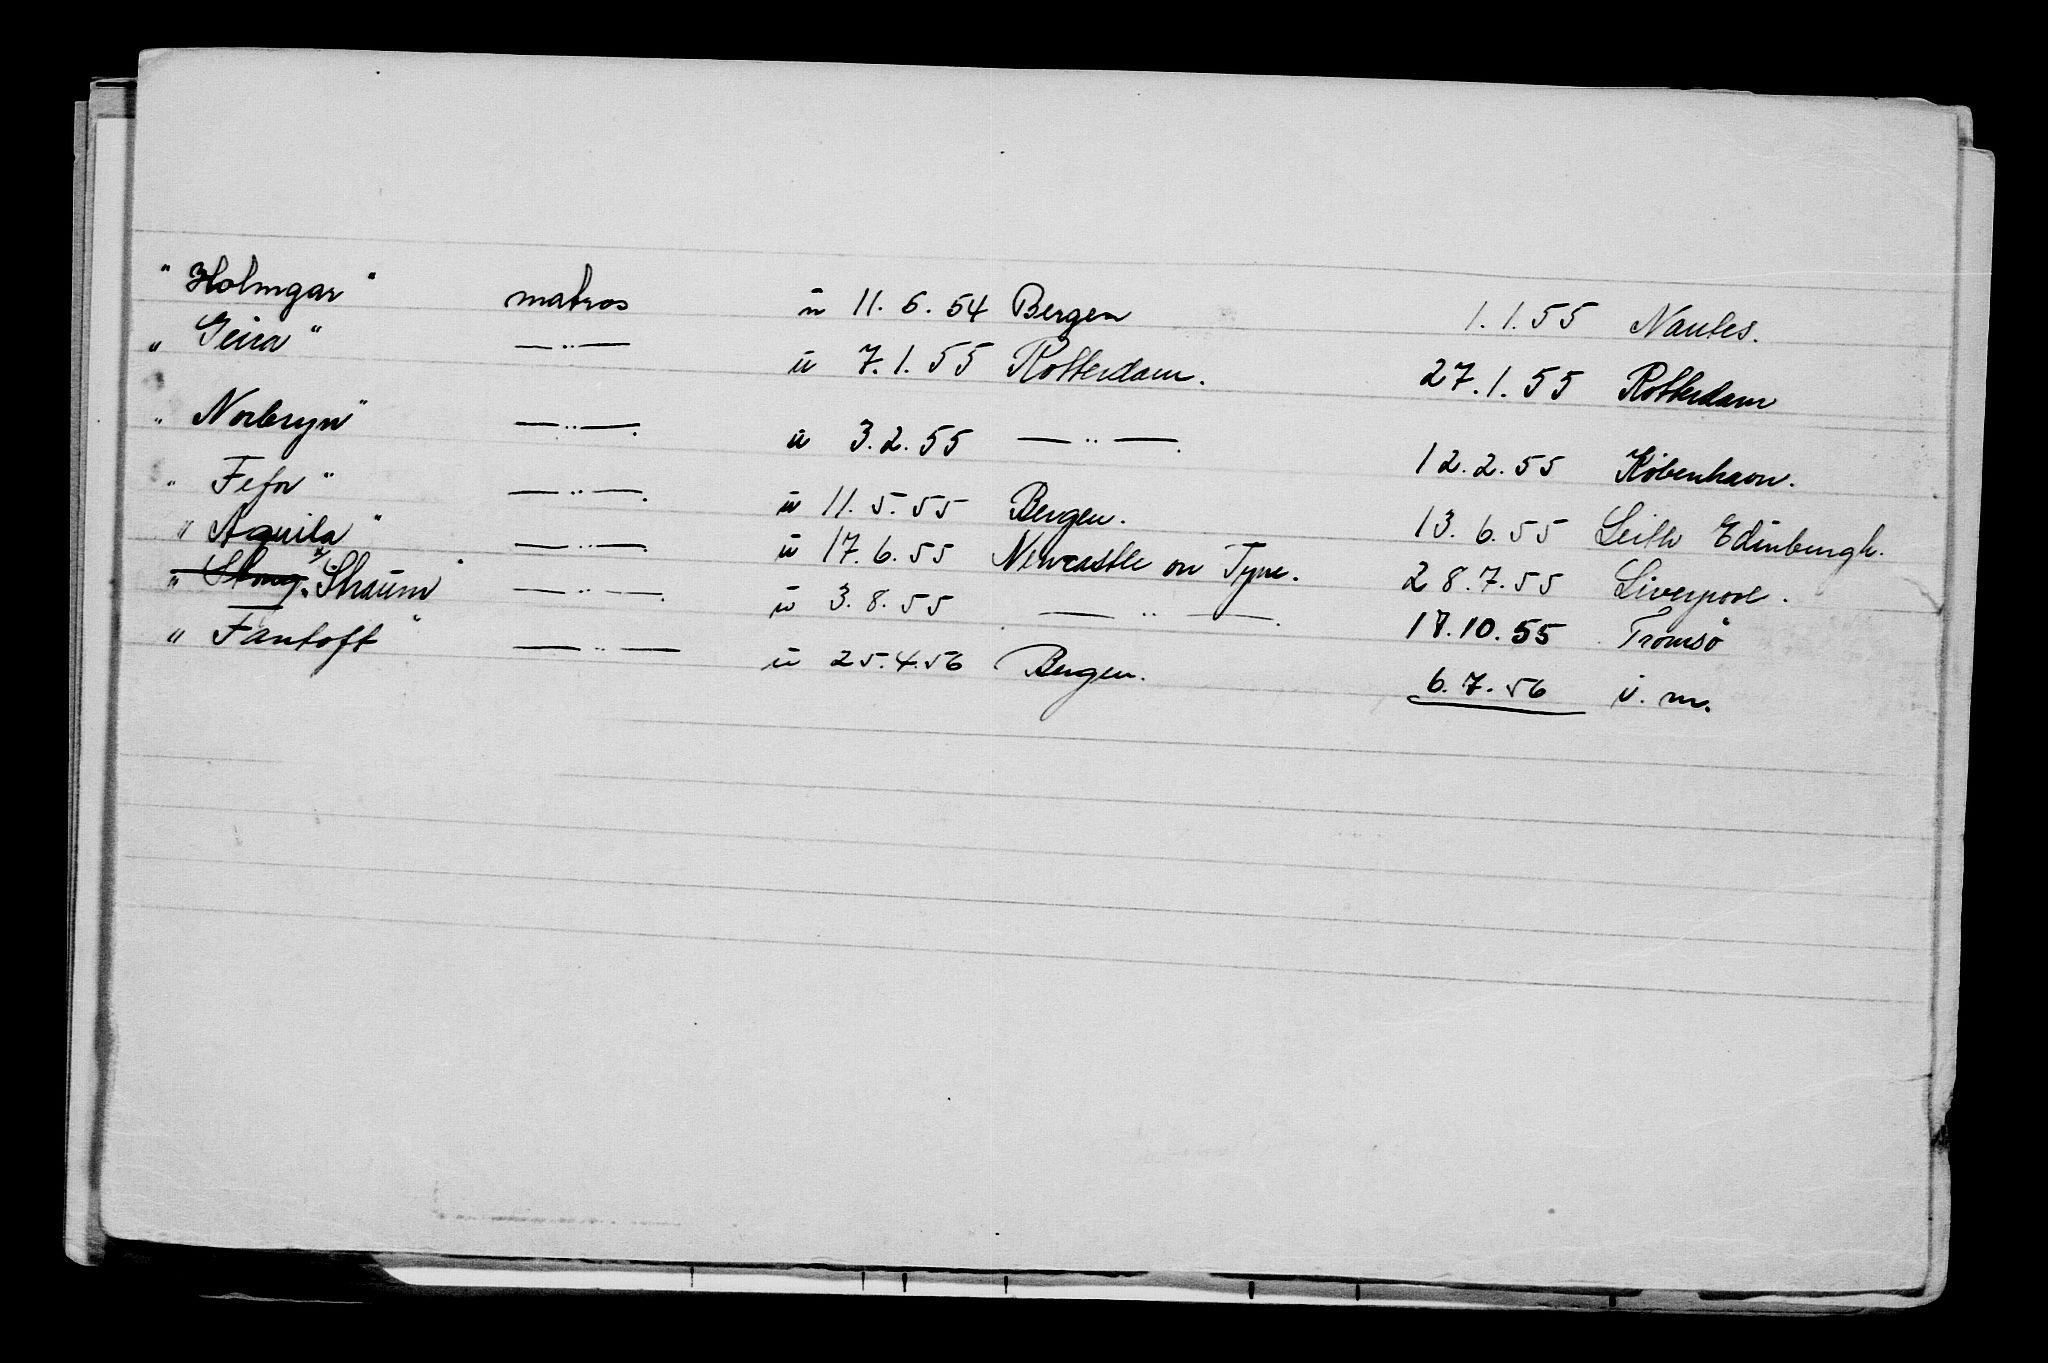 " Holmgar " matros u 11.6.54 Bergen 1.1.55 Nantes.
" Geira " —"— u 7.1.55 Rotterdam. 27.1.55 Rotterdam
" Norbryn " —"—. u 3.2.55 —"—. 12.2.55 København.
" Fefor " —"—. u 11.5.55 Bergen. 13.6.55 Leith Edinburgh.
" Aquila " —"—. u 17.6.55 Newcastle on Tyne. 28.7.55 Liverpool.
" Straum " —"—. u 3.8.55 —"—. 17.10.55 Tromsö
" Fantoft " —"— u 25.4.56 Bergen. 6.7.56 u.m.